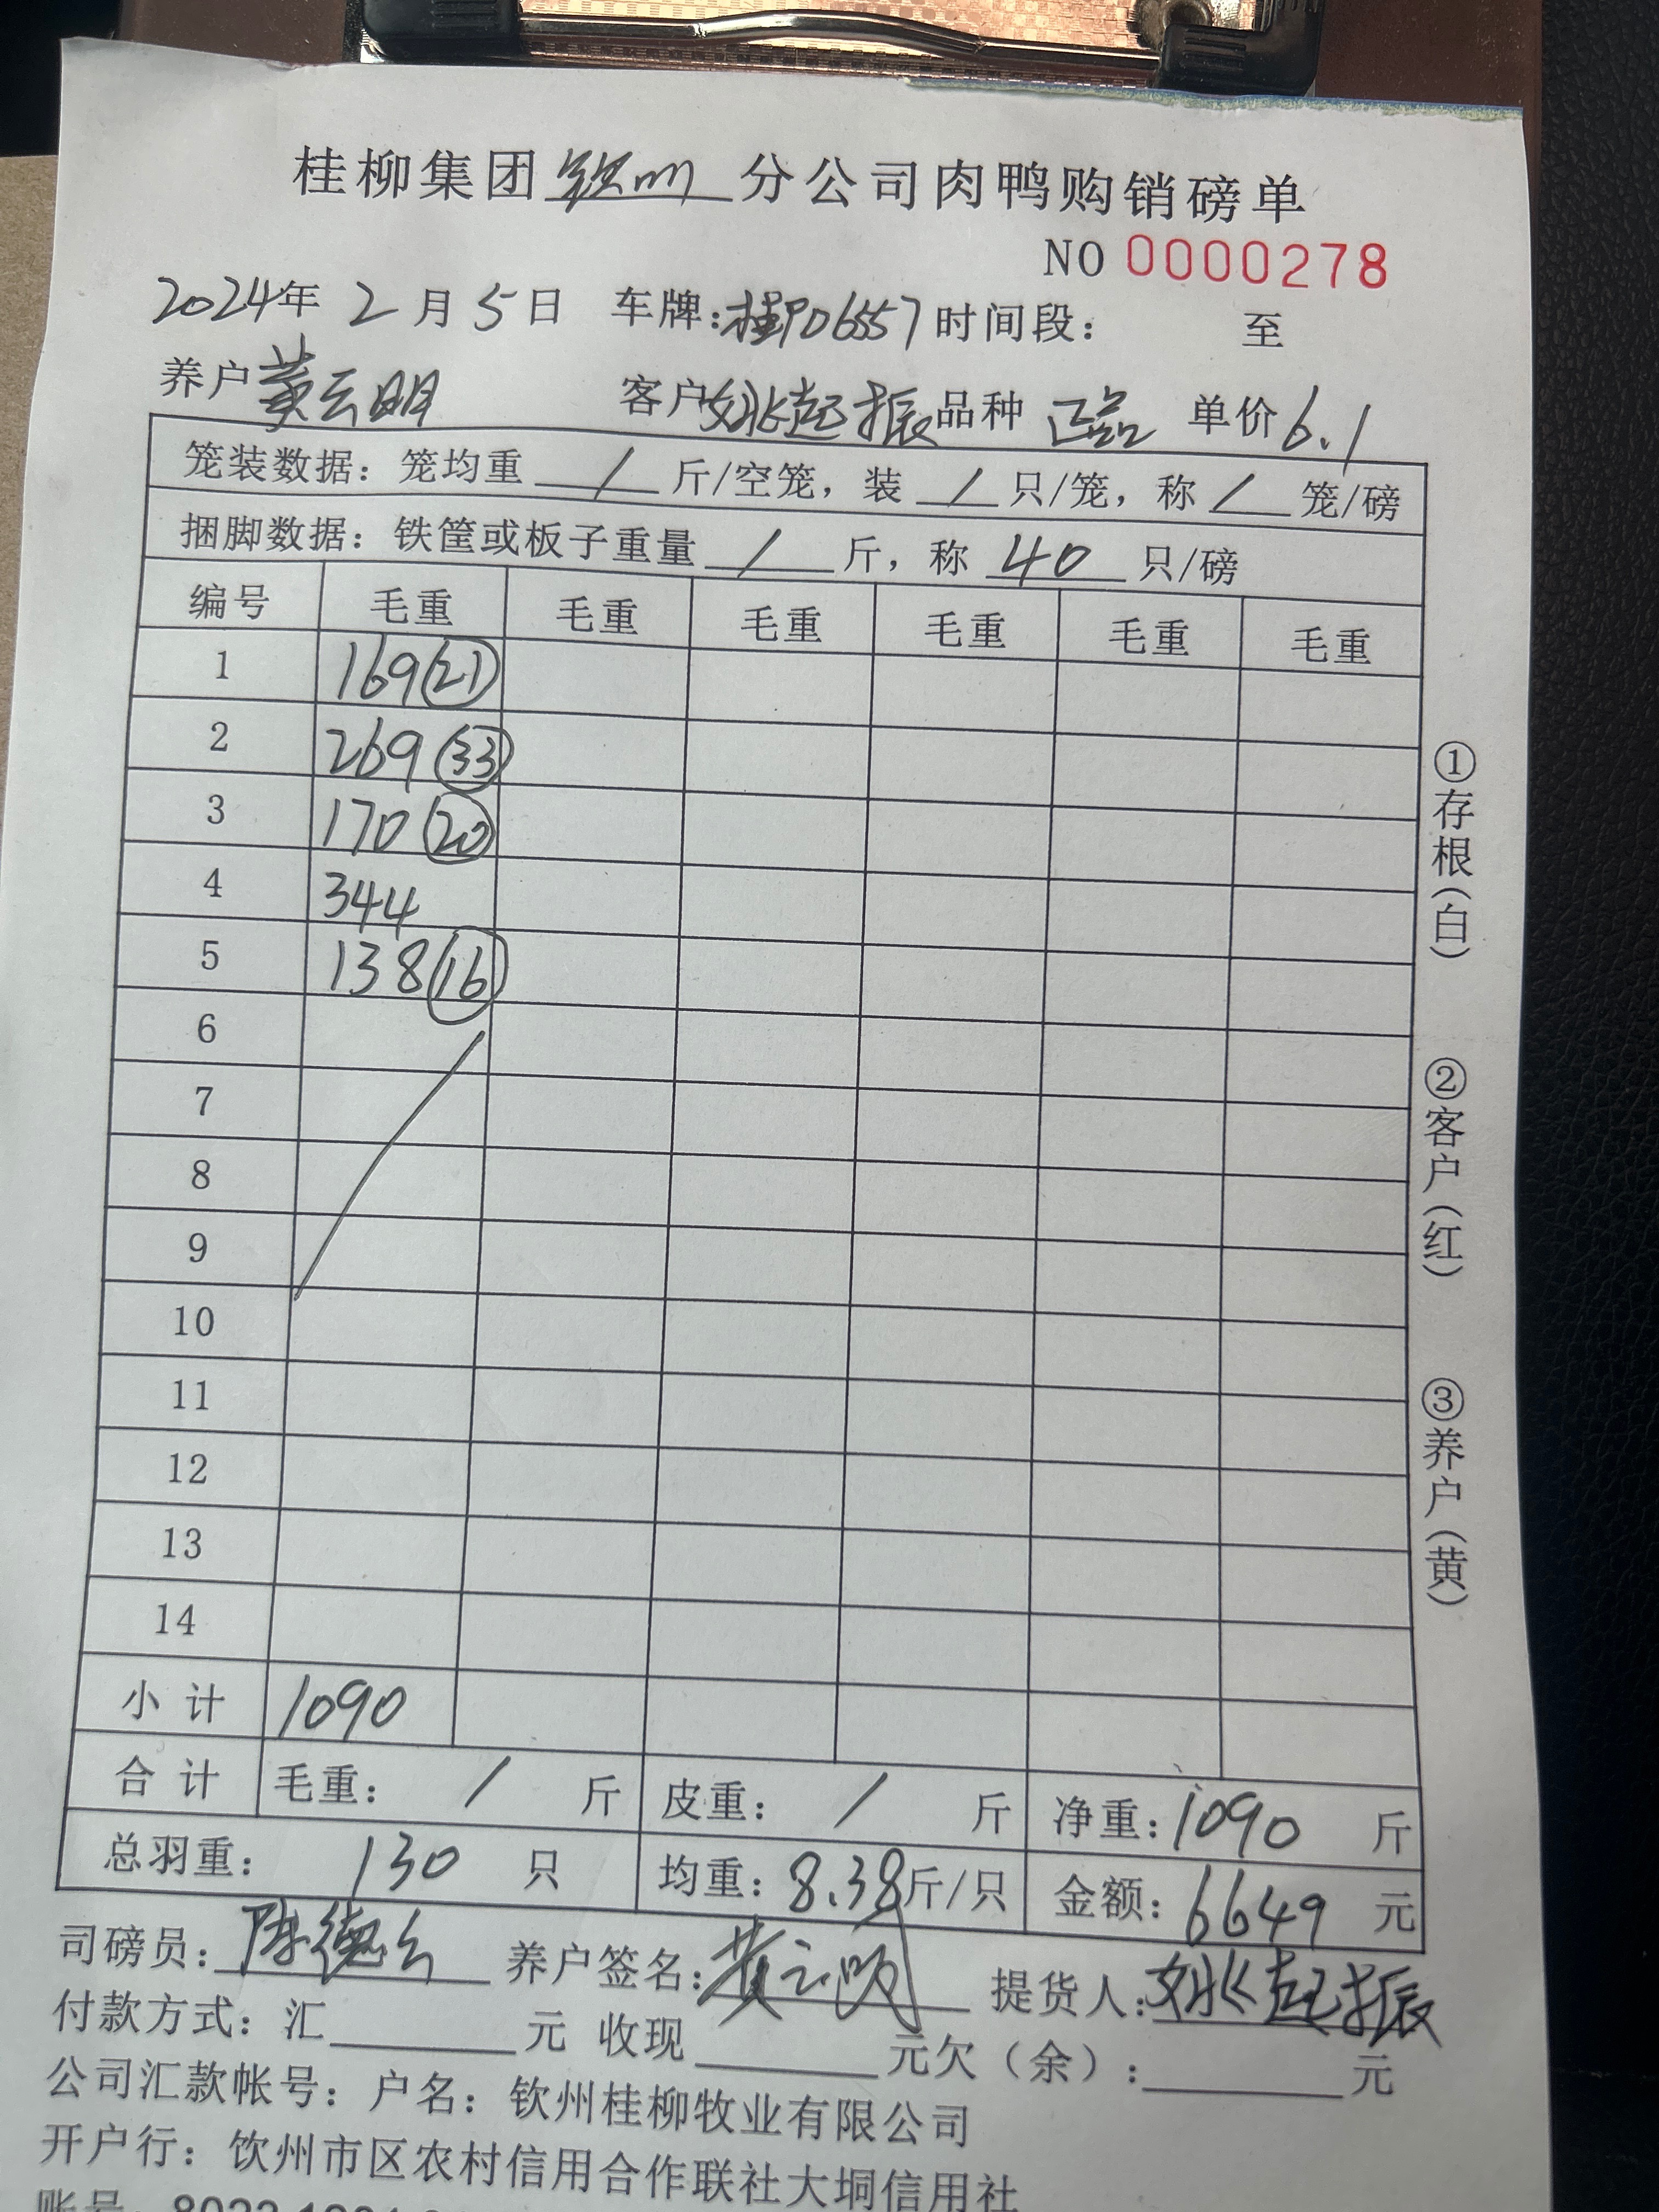 桂柳集团钦州分公司肉鸭购销磅单
NO 0000278
2024年 2月 5日 车牌:桂PD6557 时间段: 至
养户 黄云明 客户 姚起振 品种 正品 单价 6.1
笼装数据: 笼均重 / 斤/空笼, 装 / 只/笼, 称 / 笼/磅
捆脚数据: 铁筐或板子重量 / 斤, 称 40 只/磅
编号 毛重 毛重 毛重 毛重 毛重 毛重
1 169 (21)
2 269 (33)
3 170 (20)
4 344
5 138 (16)
6
7
8
9
10
11
12
13
14
小计 1090
合计 毛重: / 斤 皮重: / 斤 净重: 1090 斤
总羽重: 130 只 均重: 8.38 斤/只 金额: 6649 元
司磅员: 陈德 养户签名: 黄云明 提货人: 姚起振
付款方式: 汇 元 收现 元欠(余): 元
公司汇款帐号: 户名: 钦州桂柳牧业有限公司
开户行: 饮州市区农村信用合作联社大垌信用社
①存根(白)
②客户(红)
③养户(黄)